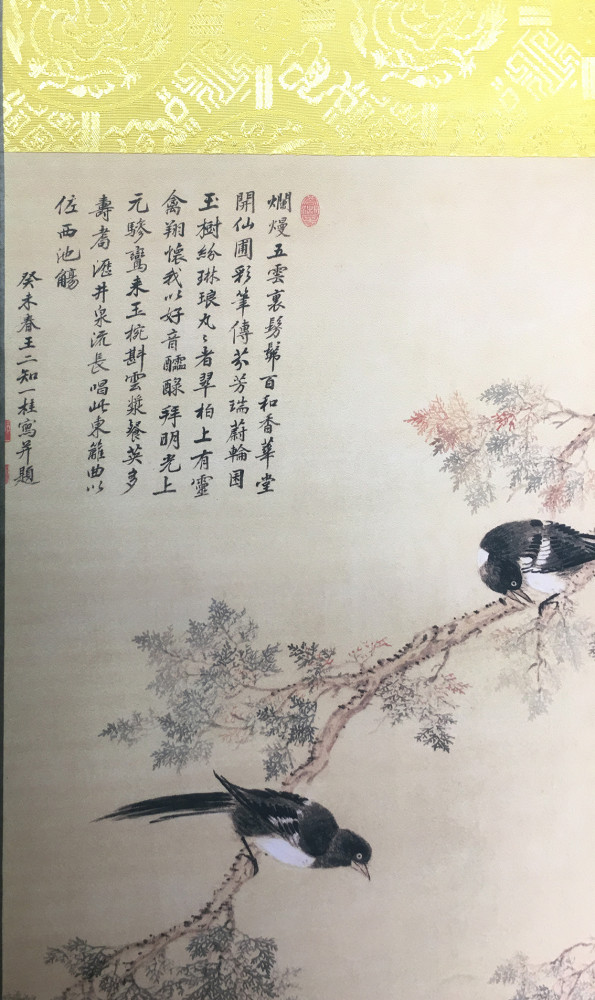 爛熳五雲裏髣髴百和香華堂
開仙圃彩筆傳芬芳瑞蔚輪囷
玉樹紛琳琅丸〻者翠柏上有靈
禽翔懷我以好音醽醁拜明光上
元驂鸞来玉椀斟雲漿餐英多
壽耈滙井泉流長唱此東籬曲以
佐西池觴
癸未春王二知一桂寫并題